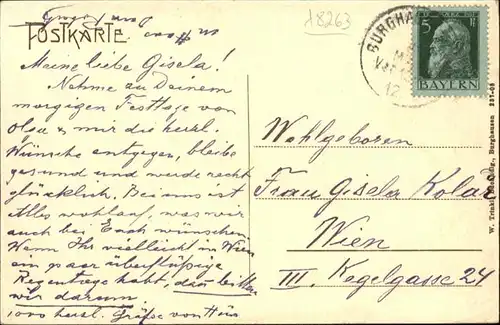 18263
POSTKARTE
Meine liebe Gisela!
Nehme zu Deinem
morgigen Festtage von
Olga & mir die herzl.
Wünsche entgegen, bleibe
gesund und werde recht
glücklich. Bei uns ist
Alles wohlauf, was wir
auch bei Euch wünschen.
Wenn Ihr vielleicht in Wien
ein paar überflüßige
Regentage habt, dan bitten
wir darum.
1000 herzl. Grüße von
BURGHA
12
5
BAYERN
Wohlgeboren
Frau Gisela Kolar
Wien
III. Kegelgasse 24
Burghausen